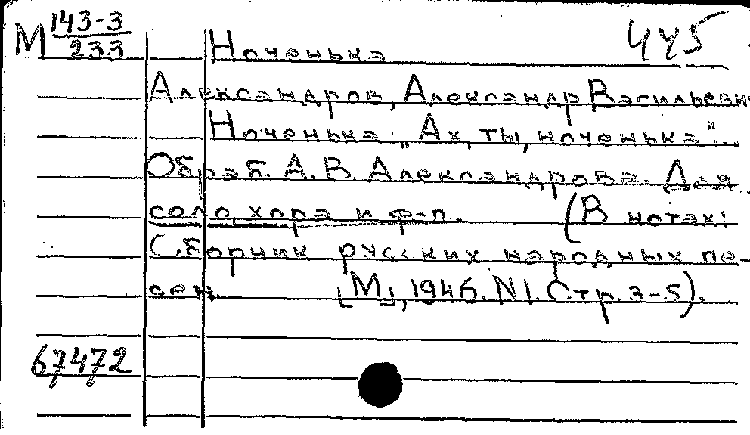 М 143-3/233
445
Ноченька
Александров, Александр Васильевич
Ноченька „Ах, ты, ноченька"...
Обраб. А. В. Александрова. Для
соло, хора и ф-п. (В нотах:
Сборник русских народных пе-
сен. [М], 1946. N1. Стр. 3-5).
67472